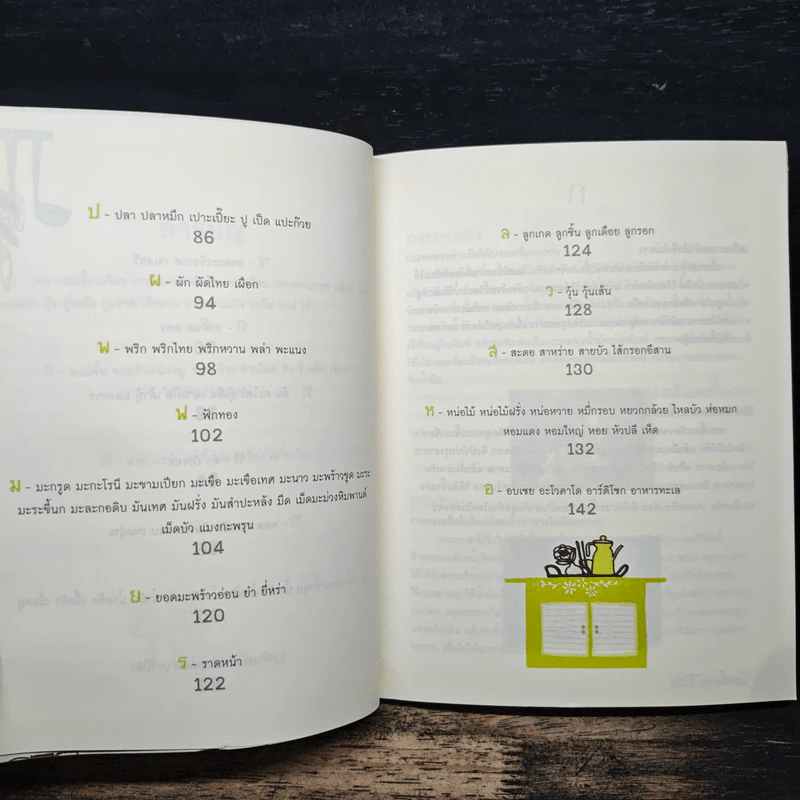 ป - ปลา ปลาหมึก เปาะเปี๊ยะ ปู เป็ด แปะก๊วย
86
ผ - ผัก ผัดไทย เผือก
94
พ - พริก พริกไทย พริกหวาน พล่า พะแนง
98
ฟ - ฟักทอง
102
ม - มะกรูด มะกะโรนี มะขามเปียก มะเขือ มะเขือเทศ มะนาว มะพร้าวขูด มะระ
มะระขี้นก มะละกอดิบ มันเทศ มันฝรั่ง มันสำปะหลัง มีด เม็ดมะม่วงหิมพานต์
เม็ดบัว แมงกะพรุน
104
ย - ยอดมะพร้าวอ่อน ยำ ยี่หร่า
120
ร - ราดหน้า
122
ล - ลูกเกด ลูกชิ้น ลูกเดือย ลูกรอก
124
ว - วุ้น วุ้นเส้น
128
ส - สะตอ สาหร่าย สายบัว ไส้กรอกอีสาน
130
ห - หน่อไม้ หน่อไม้ฝรั่ง หน่อหวาย หมี่กรอบ หยวกกล้วย ไหลบัว ห่อหมก
หอมแดง หอมใหญ่ หอย หัวปลี เห็ด
132
อ - อบเชย อะโวคาโด อาร์ติโชก อาหารทะเล
142